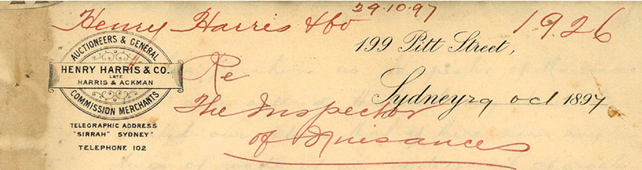 Henry Harris & Co 29.10.97 1926
AUCTIONEERS & GENERAL
HENRY HARRIS & CO.
LATE
HARRIS & ACKMAN
COMMISSION MERCHANTS
TELEGRAPHIC ADDRESS
"SIRRAH" SYDNEY
TELEPHONE 102
199 Pitt Street,
Sydney 29 Oct 1897
Re
The Inspector
of Nuisances